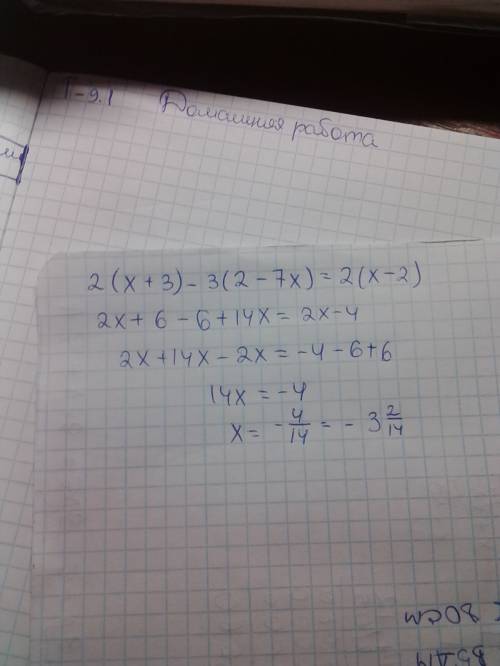 Т-9.1 Домашняя работа
2(x+3)-3(2-7x)=2(x-2)
2x+6-6+14x=2x-4
2x+14x-2x=-4-6+6
14x=-4
x=-4/14=-3 2/14